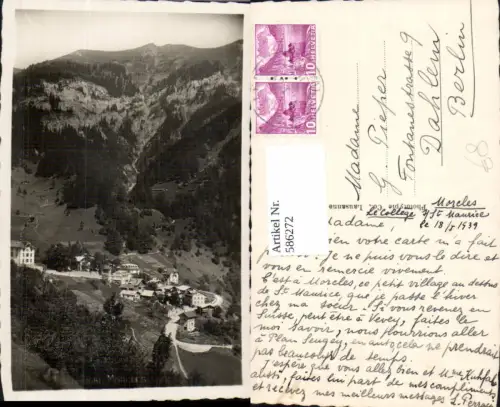 HELVETIA
10
HELVETIA
10
Artikel Nr.
586272
Madame
G. Pieper
Fontanestrasse 9
Dahlem
Berlin
68
Phototypie Co., Lausanne
Morcles
Le Collège s/ St Maurice
le 18/5 1939
Madame,
bien votre carte m'a fait
Je ne puis vous le dire et
vous en remercie vivement.
C'est à Morcles, ce petit village au dessus
de St Maurice que je passe l'hiver
chez ma sœur. Si vous revenez en
Suisse, peut être à Vevey, faites le
moi savoir, nous pourrions aller
à Plan, en autocar cela ne prendrait
pas beaucoup de temps.
J'espère que vous allez bien et Mme
aussi, faites lui part de mes compliments
et recevez mes meilleurs messages